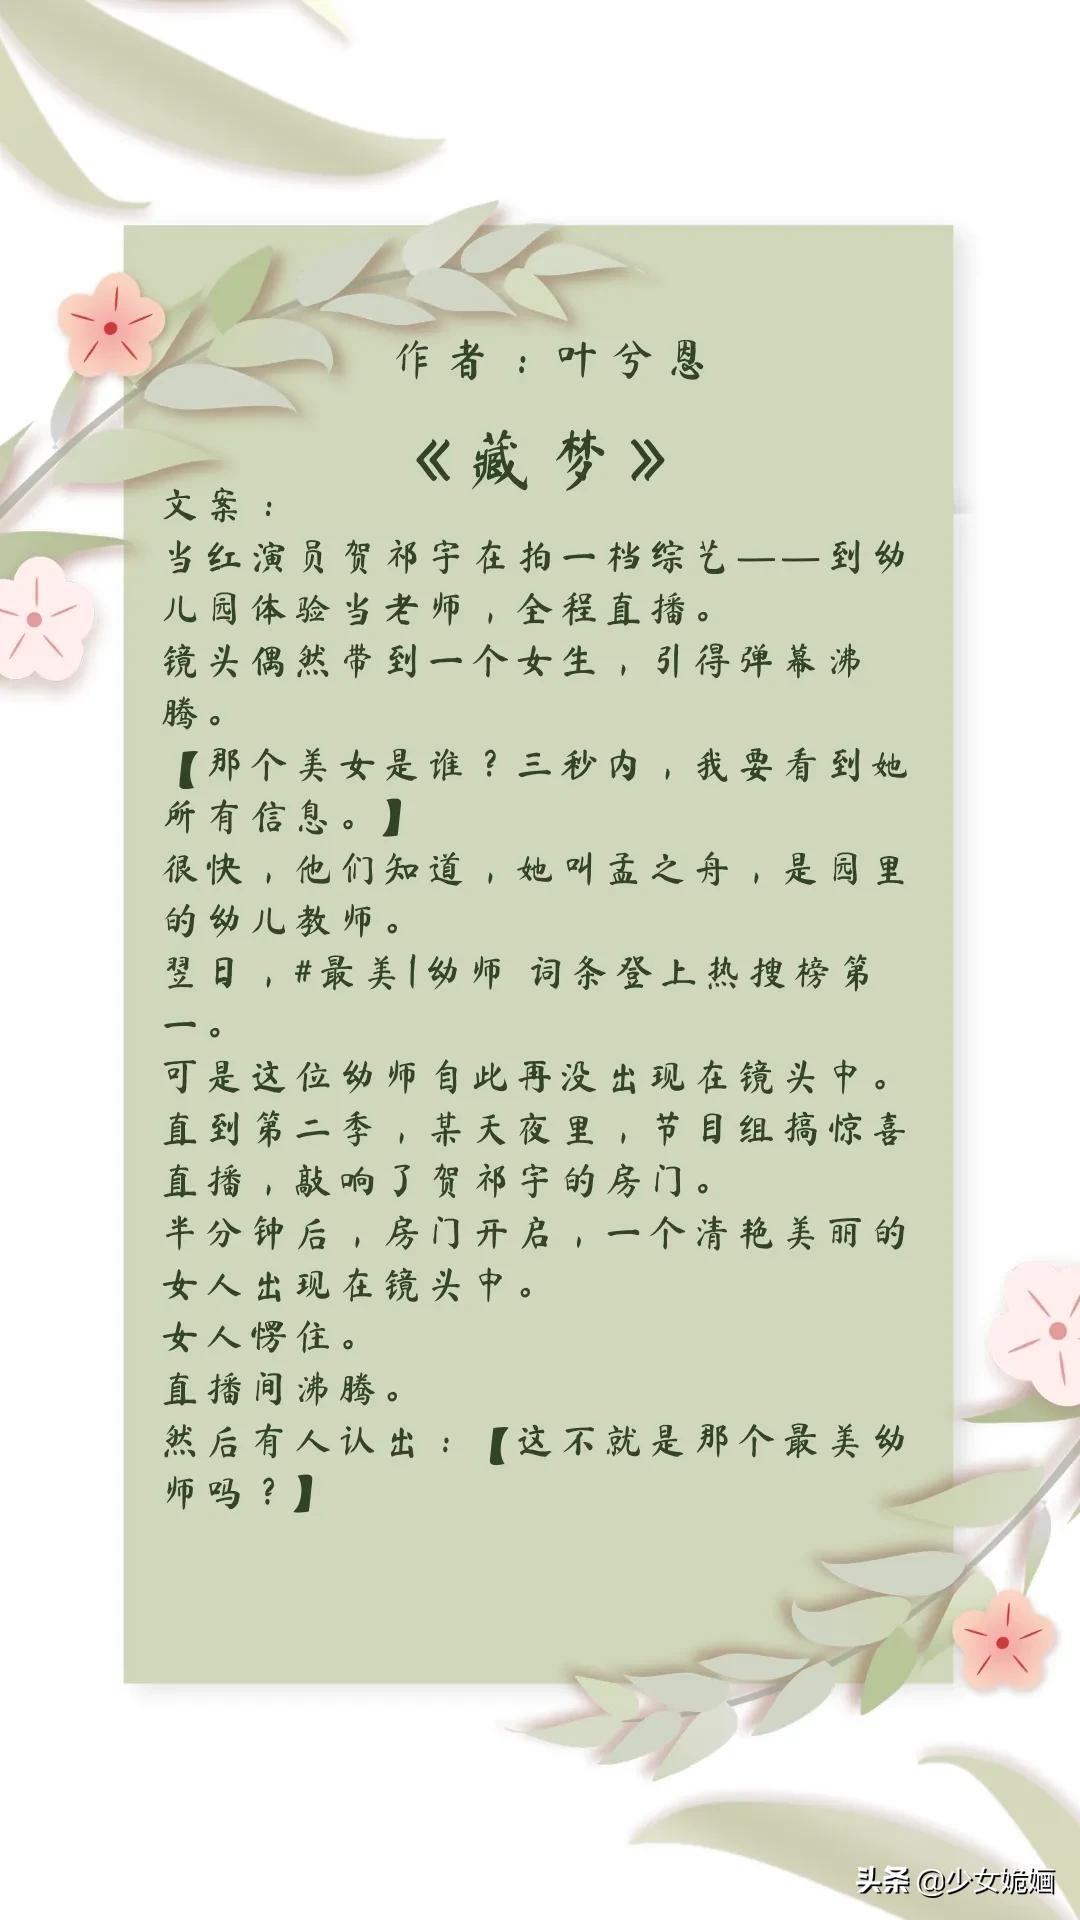 作者：叶兮恩
《藏梦》
文案：
当红演员贺祁宇在拍一档综艺——到幼
儿园体验当老师，全程直播。
镜头偶然带到一个女生，引得弹幕沸
腾。
【那个美女是谁？三秒内，我要看到她
所有信息。】
很快，他们知道，她叫孟之舟，是园里
的幼儿教师。
翌日，#最美|幼师 词条登上热搜榜第
一。
可是这位幼师自此再没出现在镜头中。
直到第二季，某天夜里，节目组搞惊喜
直播，敲响了贺祁宇的房门。
半分钟后，房门开启，一个清艳美丽的
女人出现在镜头中。
女人愣住。
直播间沸腾。
然后有人认出：【这不就是那个最美幼
师吗？】
头条 @少女姽婳